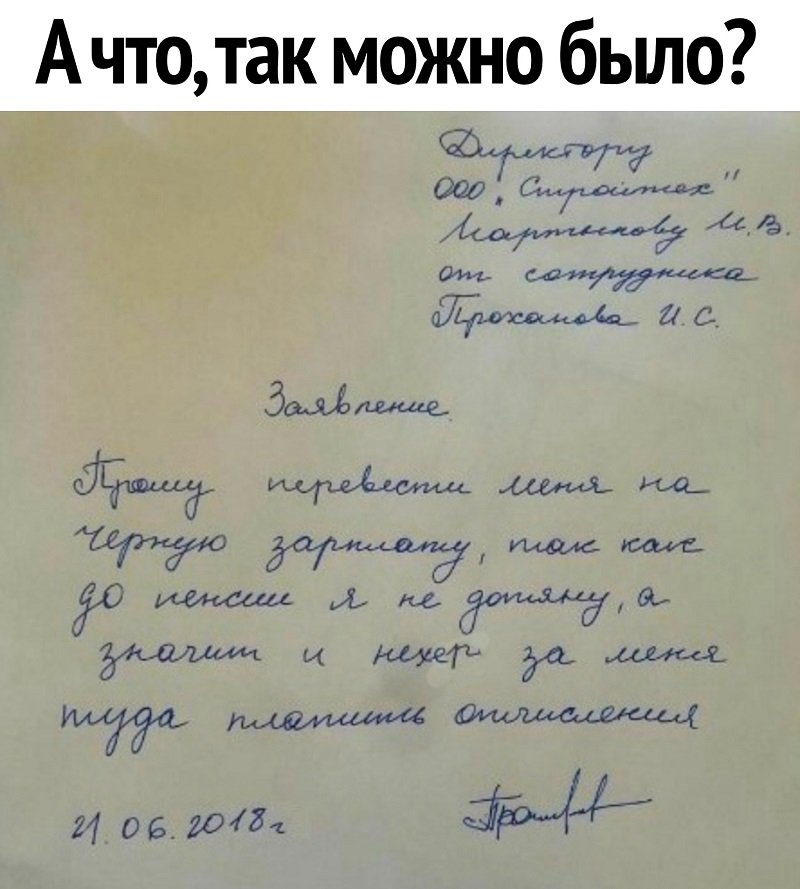 А что, так можно было?
Директору
ООО „Стройтех"
Мартынову И.В.
от сотрудника
Проханова И.С.
Заявление
Прошу перевести меня на
черную зарплату, так как
до пенсии я не дотяну, а
значит и нехер за меня
туда платить отчисления
21.06.2018г